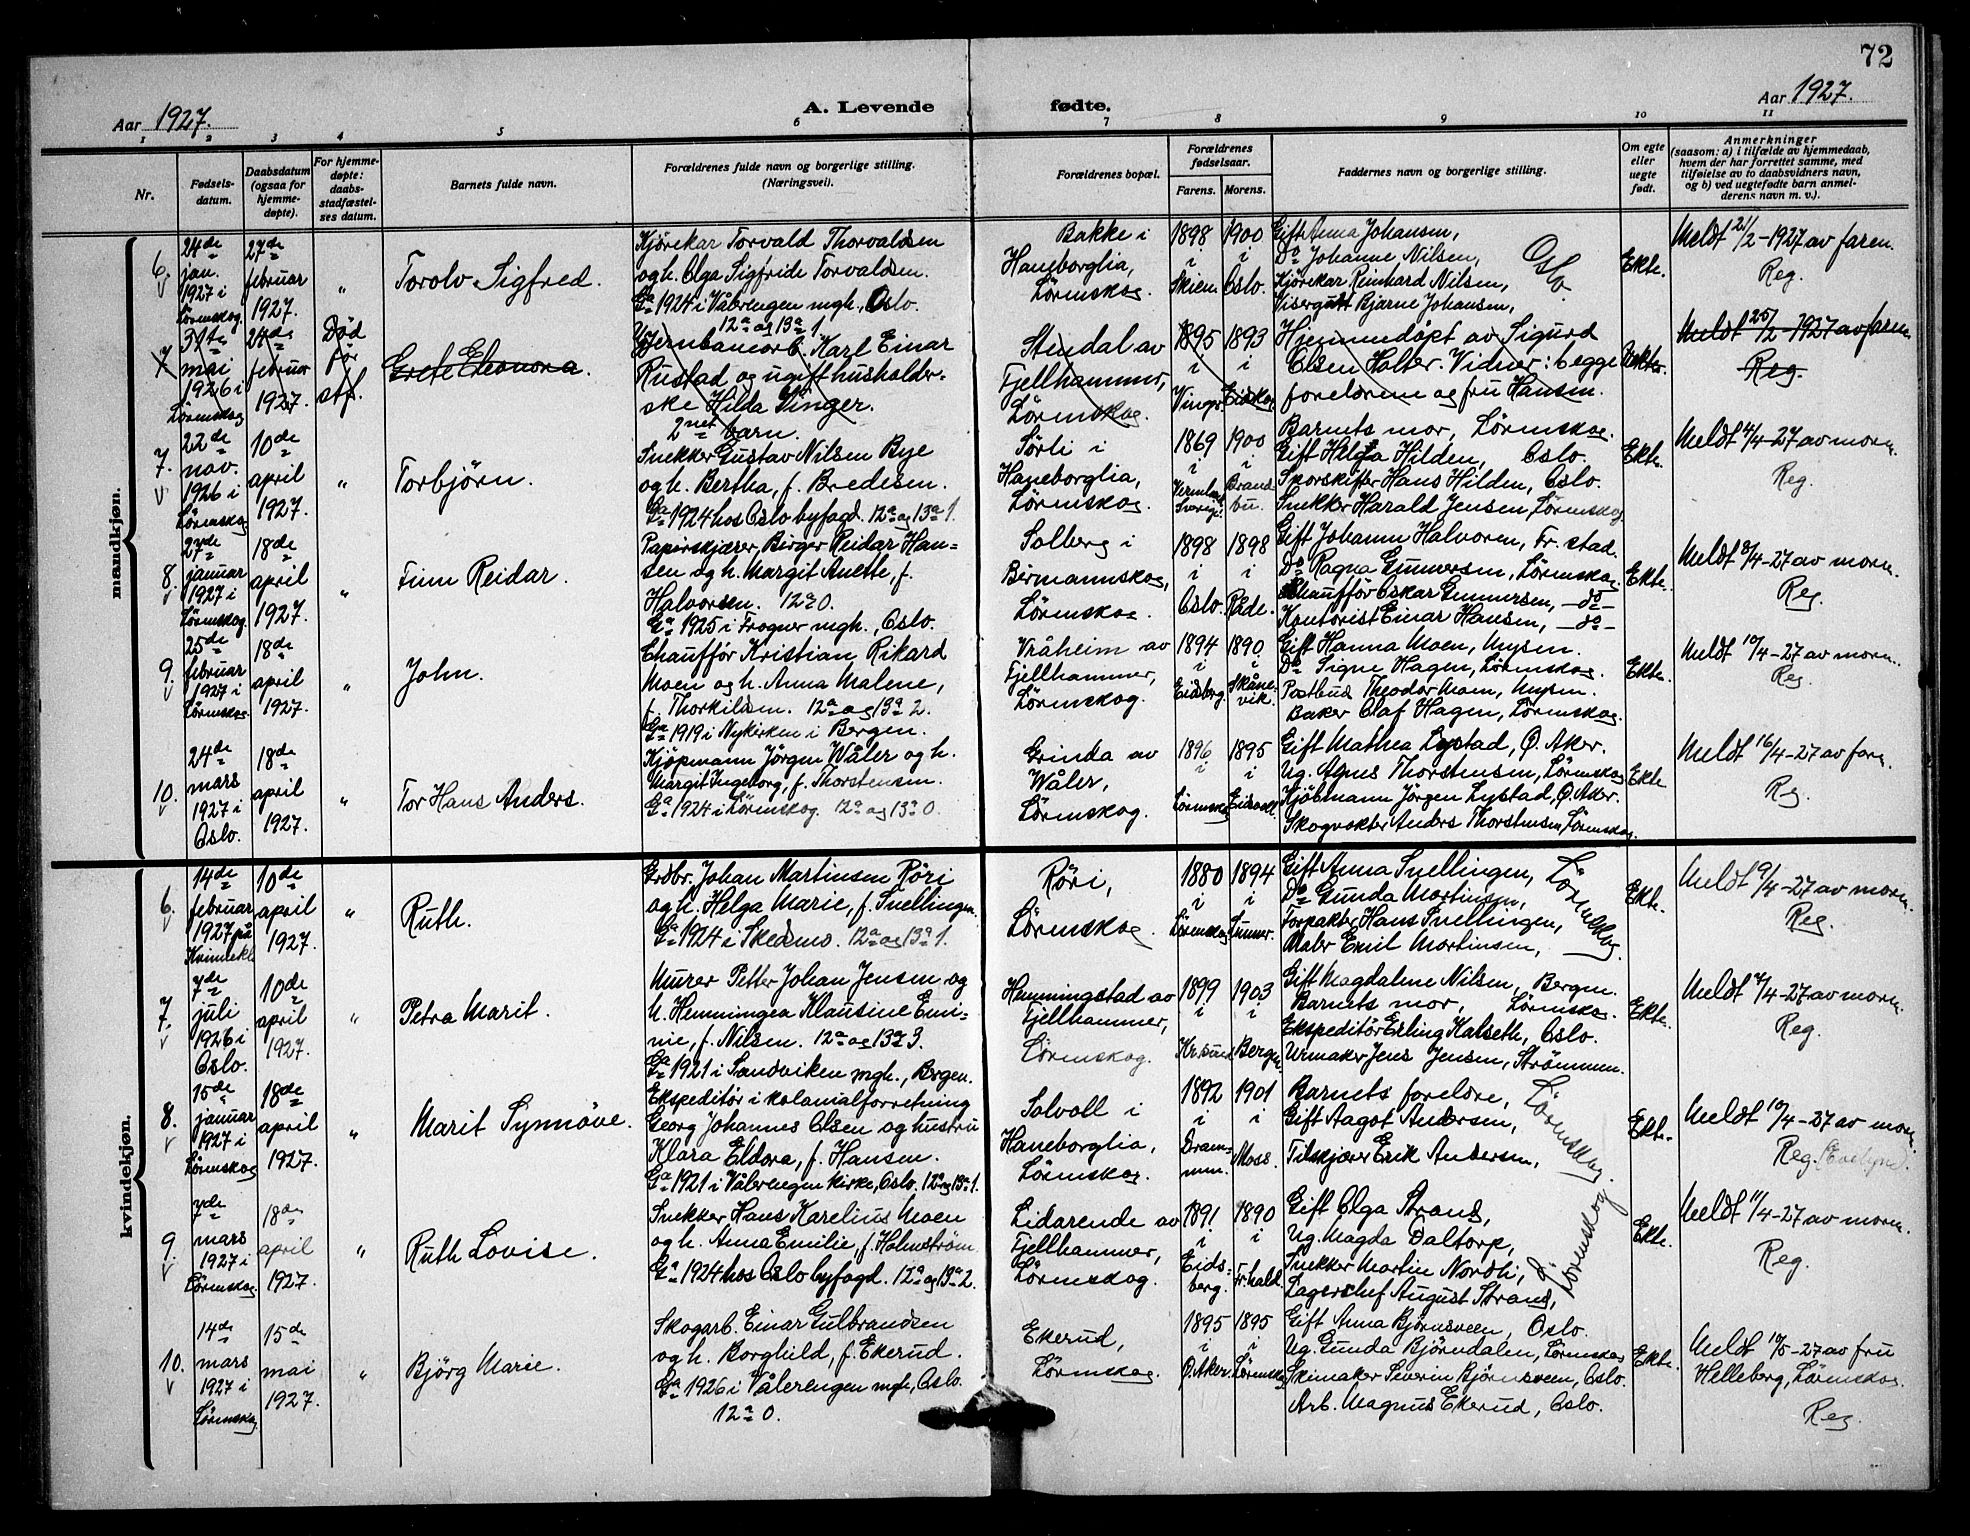 72
Aar 1927.
A. Levende fødte.
Aar 1927.
1 2 3 4 5 6 7 8 9 10 11
Nr.
Fødsels-
datum.
Daabsdatum
(ogsaa for
hjemme-
døpte).
For hjemme-
døpte:
daabs-
stadfæstel-
ses datum.
Barnets fulde navn.
Forældrenes fulde navn og borgerlige stilling.
(Næringsvei).
Forældrenes bopæl.
Forældrenes
fødselsaar.
Farens. Morens.
Faddernes navn og borgerlige stilling.
Om egte
eller
uegte
født.
Anmerkninger
(saasom: a) i tilfælde av hjemmedaab,
hvem der har forrettet samme, med
tilføielse av to daabsvidners navn,
og b) ved uegtefødte barn anmel-
derens navn m. v.).
mandkjøn.
6.
24de
jan.
1927 i
Lörenskog.
27de
februar
1927.
"
Torolv Sigfred.
Kjörekar Torvald Thorvaldsen
og h. Olga Sigfride Torvaldsen.
Ga 1924 i Vålerengen mgh., Oslo.
12a og 13a 1.
Bakke i
Haneborglia,
Lörenskog.
1898
i
Skien.
1900
i
Oslo.
Gift Anna Johansen,
Do Johanne Nilsen,
Kjörekar Reinhard Nilsen,
Visergutt Bjarne Johansen,
Oslo
Ekte.
Meldt 21/2-1927 av faren.
Reg.
7
31te
mai
1926 i
Lörenskog
24de
februar
1927.
Död
för
stf.
Grete Eleonora.
Jernbanearb. Karl Einar
Rustad og ugift husholder-
ske Hilda Vinger.
2net barn.
Stendal av
Fjellhammer,
Lörenskog.
1895
i
Vinger
1893
i
Eidskog
Hjemmedöpt av Sigurd
Olsen Holter. Vidner: begge
foreldrene og fru Hansen.
Meldt 25/2-1927 av faren
Reg.
7.
22de
nov.
1926 i
Lörenskog
10de
april
1927.
"
Torbjörn.
Snekker Gustav Nilsen Bye
og h. Bertha, f. Bredesen.
Ga 1924 hos Oslo byfogd. 12a og 13a 1.
Sörli i
Haneborglia,
Lörenskog.
1869
i
Vermland
Sverige
1900
i
Brand-
bu.
Barnets mor, Lörenskog.
Gift Helga Hilden, Oslo.
Sporskifter Hans Hilden, Oslo.
Snekker Harald Jensen Lörenskog
Ekte.
Meldt 4/4-27 av moren.
Reg.
8.
27de
januar
1927 i
Lörenskog.
18de
april
1927.
"
Finn Reidar.
Papirskjærer, Birger Reidar Han-
sen og h. Margit Anette, f.
Halvorsen. 12a 0.
Ga 1925 i Frogner mgh., Oslo.
Solberg i
Birmannskog,
Lörenskog.
1898
i
Oslo.
1898
i
Råde.
Gift Johanne Halvorsen, Fr.stad.
Do Ragna Gunnersen, Lörenskog.
Chaufför Oskar Gunnersen, -do-
Kontorist Einar Hansen, -do-
Ekte.
Meldt 8/4-27 av moren.
Reg.
9.
25de
februar
1927 i
Lörenskog.
18de
april
1927.
"
John.
Chaufför Kristian Rikard
Moen og h. Anna Malene,
f. Thorkildsen. 12a og 13a 2.
Ga 1919 i Nykirken i Bergen.
Vråheim av
Fjellhammer,
Lörenskog.
1894
i
Eidsberg.
1890
i
Skåne-
vik.
Gift Hanna Moen, Mysen.
Do Signe Hagen, Lörenskog.
Postbud Theodor Moen, Mysen.
Baker Olaf Hagen, Lörenskog.
Ekte.
Meldt 10/4-27 av moren.
Reg.
10.
24de
mars
1927 i
Oslo.
18de
april
1927.
"
Tor Hans Anders.
Kjöpmann Jörgen Wåler og h.
Margit Ingeborg, f. Thorstensen.
Ga 1924 i Lörenskog. 12a og 13a 0.
Grinda av
Wåler,
Lörenskog.
1896
i
Lörenskog
1895
i
Eidsvoll
Gift Mathea Lystad, Ö. Aker.
Ug. Agnes Thorstensen, Lörenskog
Kjöbmann Jörgen Lystad, Ö. Aker.
Skogvokter Anders Thorstensen, Lörenskog.
Ekte
Meldt 16/4-27 av faren.
Reg.
kvindekjøn.
6.
14de
februar
1927 på
10de
april
1927.
"
Ruth.
Grdbr. Johan Martinsen Röri
og h. Helga Marie, f. Snellingen.
Ga 1924 i Skedsmo. 12a og 13a 1.
Röri,
Lörenskog.
1880
i
Lörenskog
1894
i
Gift Anna Snellingen,
Do Gunda Martinsen,
Forpakter Hans Snellingen,
Maler Emil Martinsen,
Lörenskog.
Ekte.
Meldt 9/4-27 av moren.
Reg.
7.
7de
juli
1926 i
Oslo.
10de
april
1927.
"
Petra Marit.
Murer Petter Johan Jensen og
h. Hemmingea Klausine Emi-
nie, f. Nilsen. 12a og 13a 3.
Ga 1921 i Sandviken mgh., Bergen.
Hemmingstad av
Fjellhammer,
Lörenskog.
1899
i
Kr.sund
1903
i
Bergen.
Gift Magdalene Nilsen, Bergen.
Barnets mor, Lörenskog.
Ekspeditör Erling Kalseth, Oslo.
Urmaker Jens Jensen, Strömmen.
Ekte.
Meldt 7/4-27 av moren.
Reg.
8.
15de
januar
1927 i
Lörenskog
18de
april
1927.
"
Marit Synnöve.
Ekspeditör i kolonialforretning
Georg Johannes Olsen og hustru
Klara Eldora, f. Hansen.
Ga 1921 i Vålerengen kirke, Oslo. 12a og 13a 1.
Solvoll i
Haneborglia,
Lörenskog.
1892
i
Dram-
men.
1901
i
Moss.
Barnets foreldre,
Gift Aagot Andersen,
Tilskjærer Erik Andersen,
Lörenskog.
Ekte.
Meldt 10/4-27 av moren
Reg. (Evelyne).
9.
7de
mars
1927 i
Lörenskog.
18de
april
1927.
"
Ruth Lovise.
Snekker Hans Karelius Moen
og h. Anna Emilie, f. Holmström.
Ga 1924 hos Oslo byfogd. 12a og 13a 2.
Lidarende av
Fjellhammer,
Lörenskog.
1891
i
Eids-
berg.
1890
i
Fr.hald.
Gift Olga Strand,
Ug. Magda Daltorp,
Snekker Martin Nordli,
Lagerchef August Strand,
Lörenskog
Ekte.
Meldt 11/4-27 av moren.
Reg.
10.
14de
mars
1927 i
Lörenskog
15de
mai
1927.
"
Björg Marie.
Skogarb. Einar Gulbrandsen
og h. Borghild, f. Ekerud.
Ga 1926 i Vålerengen mgh, Oslo.
12a 0.
Ekerud,
Lörenskog.
1895
i
Ö. Aker.
1895
i
Lörenskog
Gift Anna Björnsveen, Oslo.
Ug. Gunda Björndalen, Lörenskog
Skimaker Severin Björnsveen, Oslo.
Arb. Magnus Ekerud, Oslo.
Ekte.
Meldt 10/5-27 av fru
Helleberg, Lörenskog.
Reg